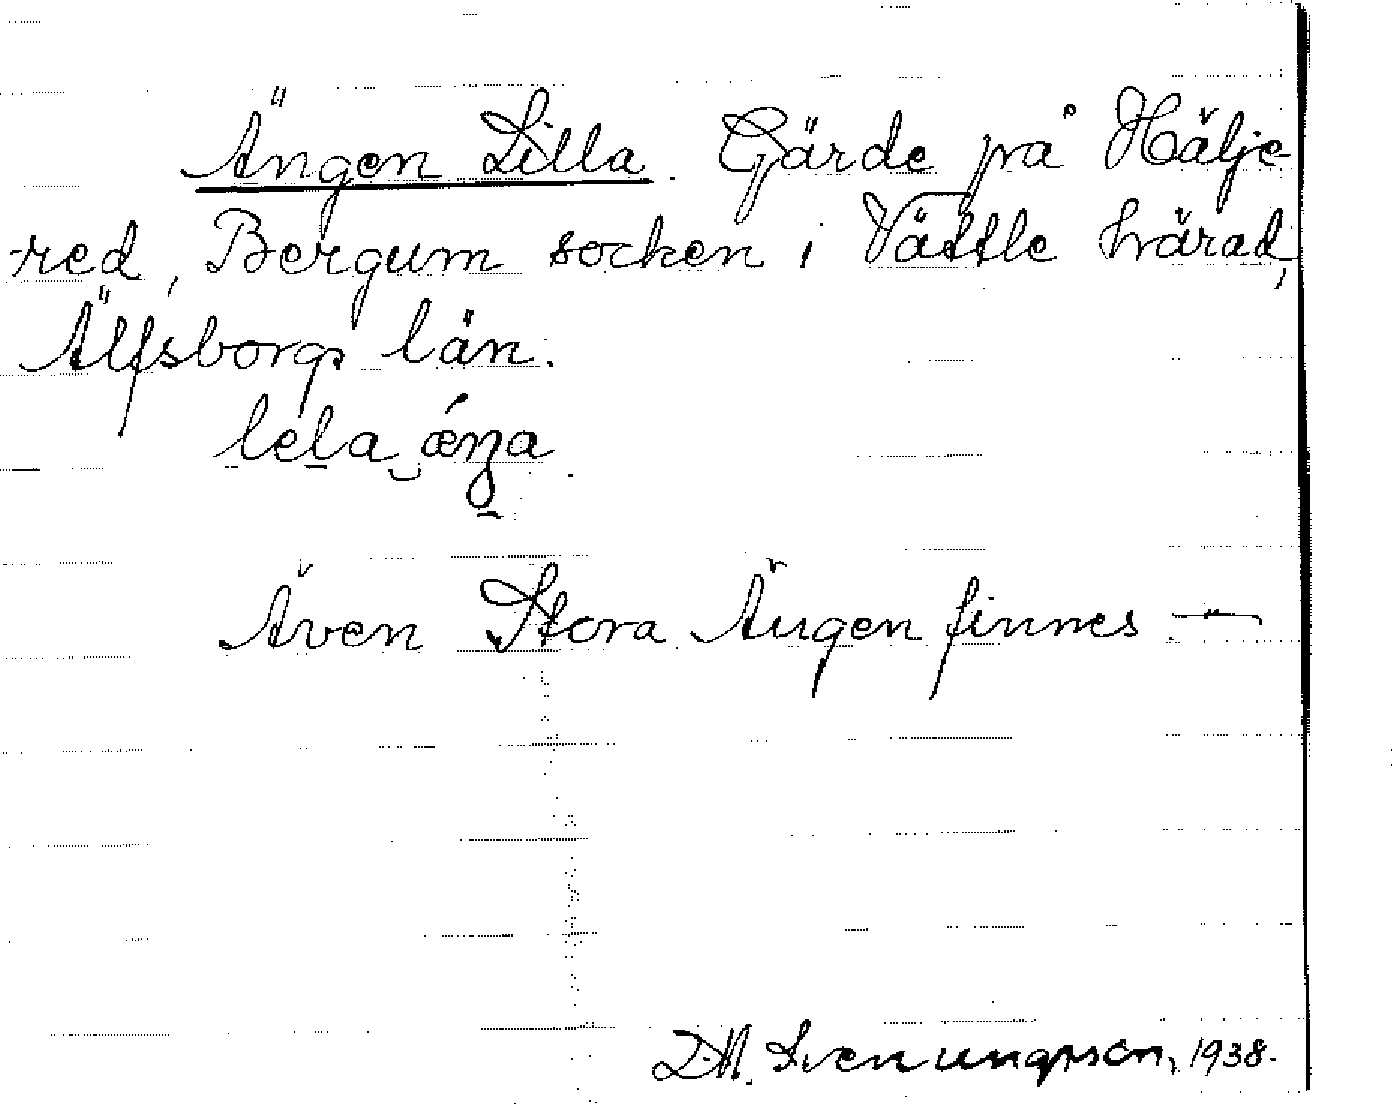 Ängen Lilla. Gärde på Hälje-
red, Bergum socken i Vättle härad,
Älfsborgs län.
lela‿ǽŋa
Även Stora Ängen finnes —"—
D.M. Svenungsson, 1938.